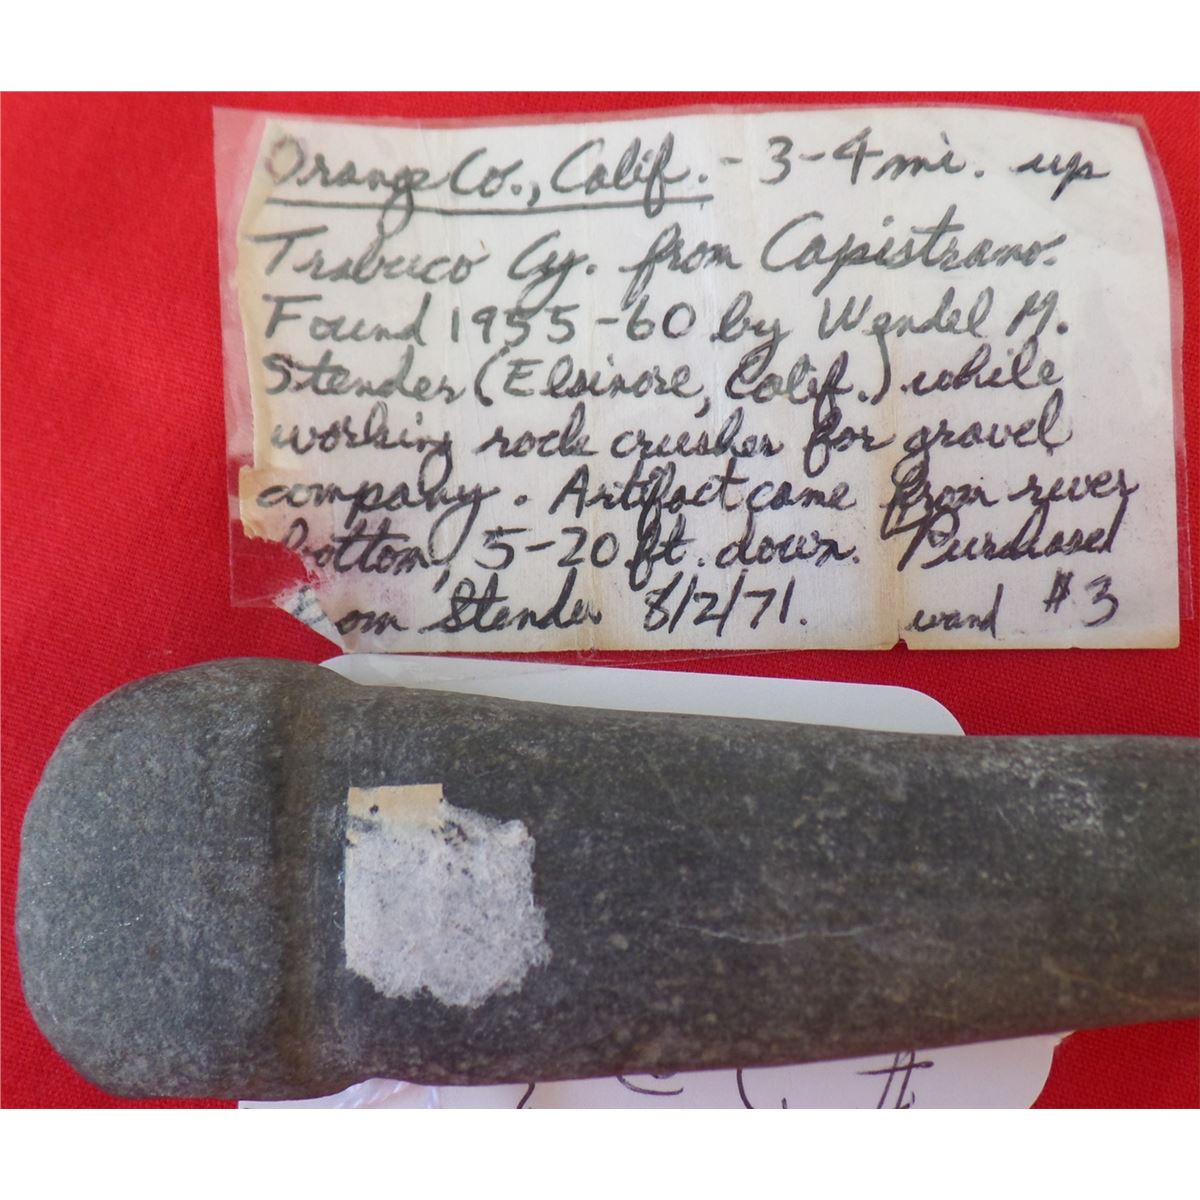 Orange Co., Calif. - 3-4 mi. up
Trabuco Cy. from Capistrano.
Found 1955-60 by Wendel M.
Stender (Elsinore, Calif.) while
working rock crusher for gravel
company. Artifact came from river
bottom, 5-20 ft. down. Purchased
from Stender 8/2/71. wand #3